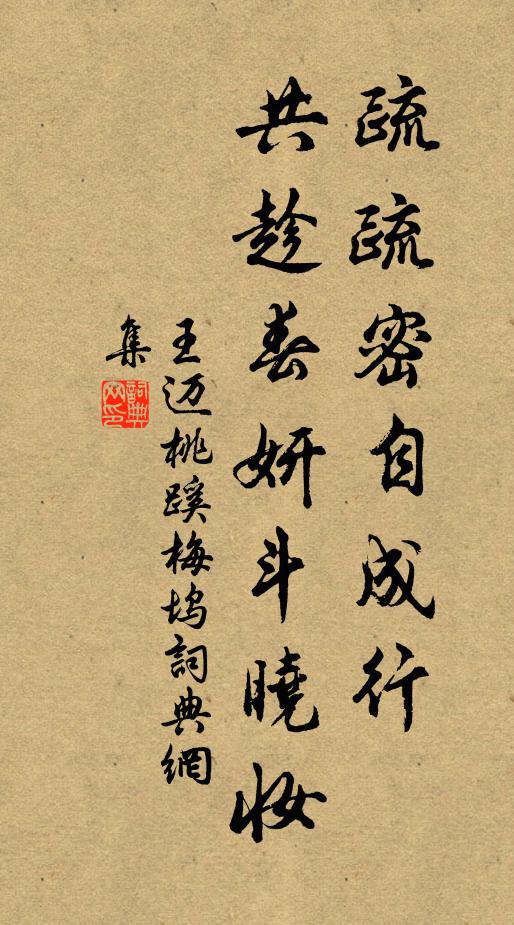 疏疏密自成行
共趁春妍斗曉妆
王迈桃蹊梅坞詞典網
集
詞典网印